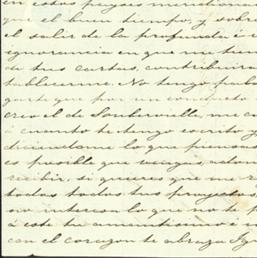 en estos payses meridiona
que el buen tiempo, y sobre
el salir de la profunda é i
ignorancia en que me tien
de tus cartas, contribuira
tablecerme. No tengo
que por un conducto
creo el de Sonderville, me
á cuanto te tengo escrito y
diciendome lo que piensas
es posible que venga a
recibir, si quieres que me
todos todos tus proyectos
no interesan lo que no te
á este tu amantisimo é
con el corazon te abraza Ign